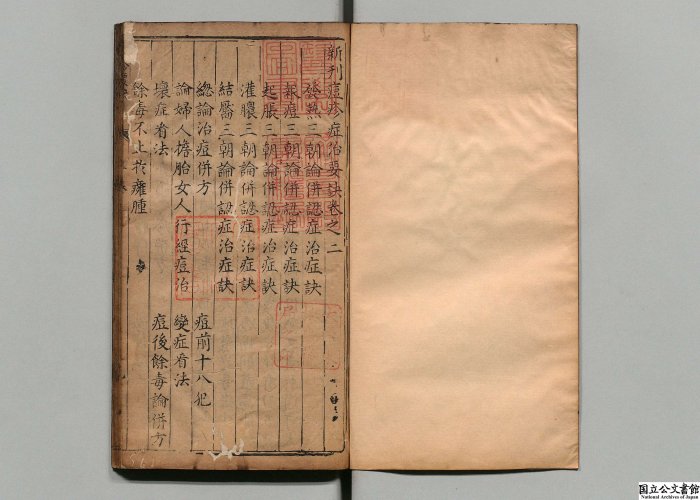 新刊痘疹症治要訣卷之二
發熱三朝論併認症治症訣
報痘三朝論併認症治症訣
起脹三朝論併認症治症訣
灌膿三朝論併認症治症訣
結靨三朝論併認症治症訣
總論治痘併方 痘前十八犯
論婦人擔胎女人行經痘治 變症看法
壞症看法 痘後餘毒論併方
餘毒不止於癰腫
国立公文書館
National Archives of Japan